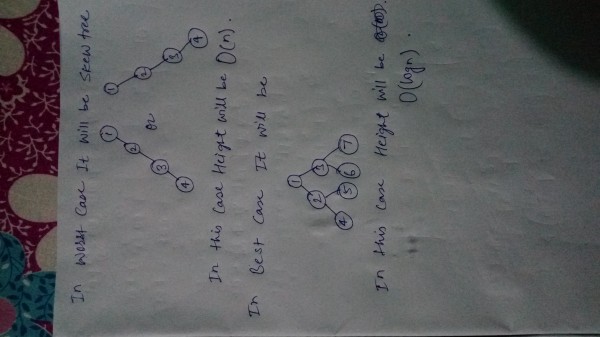 In Worst Case It will be Skew tree
1 2 3 4 or 1 2 3 4
In this Case Height will be O(n).
In Best Case It will be
1
2 3
4 5 6 7
In this Case Height will be
O(logn).